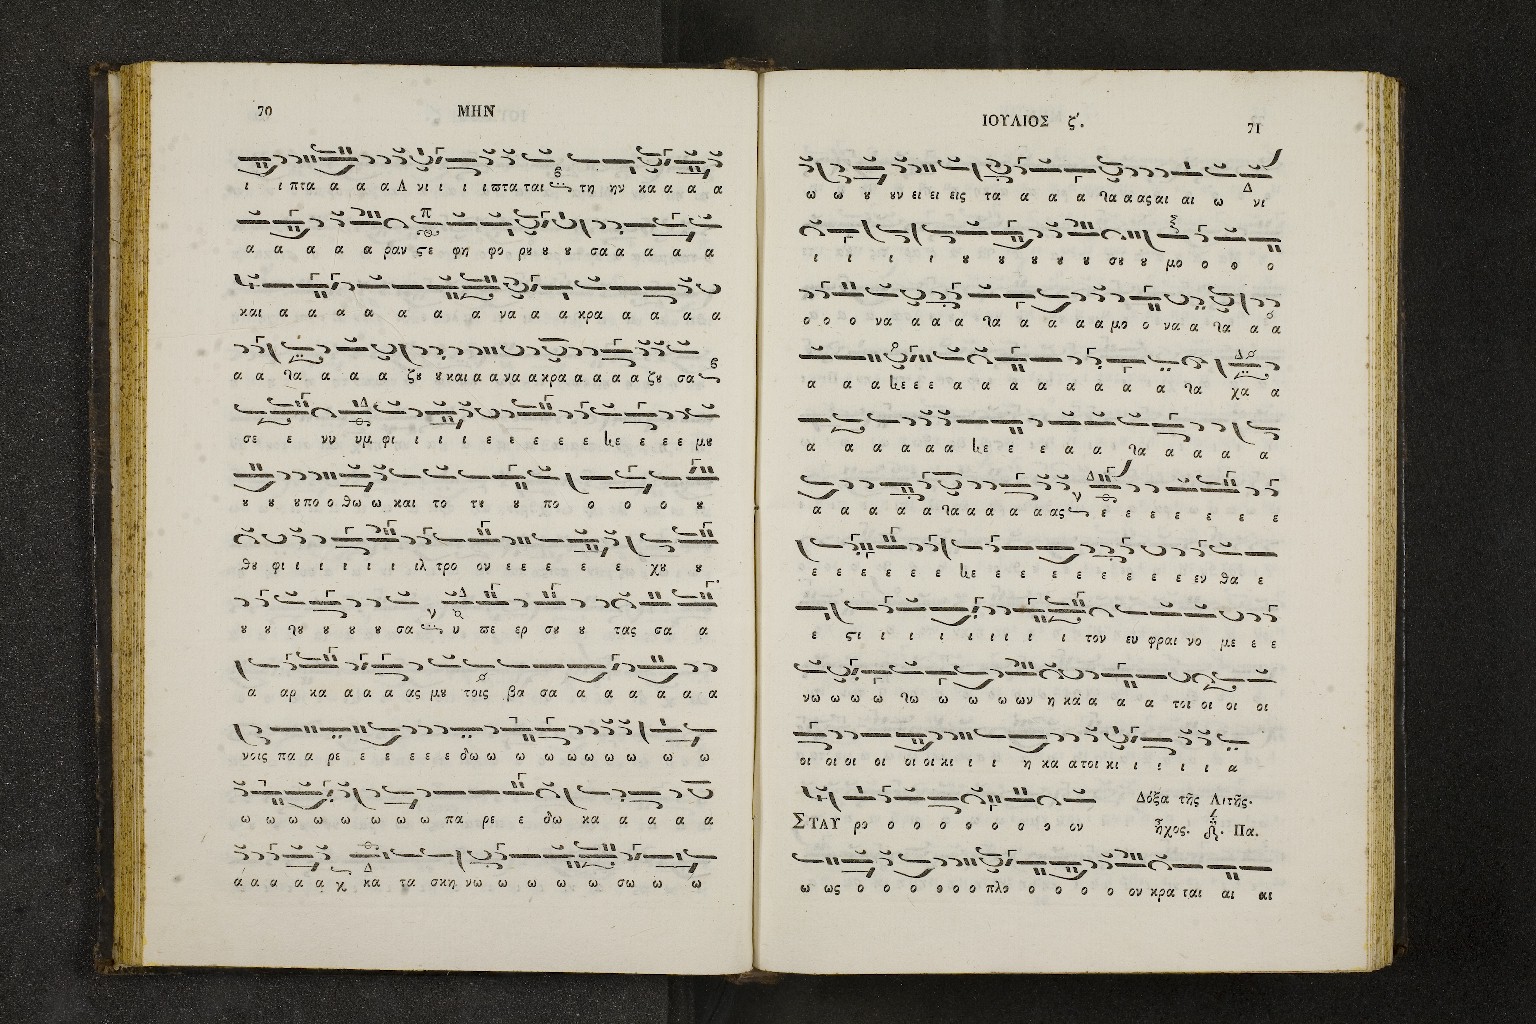 70
ΜΗΝ
ι ι πτα α α α Λ νι ι ι ιπτα ται τη ην κα α α α
α α α α α ραν ςε φη φο ρυ υ υ σα α α α α
και α α α α α α α να α α κρα α α α α
α α τα α α α ζυ υ και α α να α κρα α α α α ζυ σα
σε ε νυ υμ φι ι ι ι ε ε ε ε ε με ε ε ε μυ
υ υ υπο ο θω ω και το τυ υ πο ο ο ο υ
θυ φι ι ι ι ι ι ιλ τρο ον ε ε ε ε ε ε χυ υ
υ υ τυ υ υ υ σα υ πε ερ συ υ τας σα α
α αρ κα α α α ας μυ τοις βα σα α α α α α α
νοις πα α ρε ε ε ε ε ε δω ω ω ω ω ω ω ω ω ω
ω ω ω ω ω ω ω ω πα ρε ε δω κα α α α α
α α α α α χ κα τα σκη νω ω ω ω ω σω ω ω
ΙΟΥΛΙΟΣ ζʹ.
71
ω ω υ υν ει ει εις τα α α α τα α ας αι αι ω νι
ι ι ι ι υ υ υ υ υ συ υ μο ο ο ο
ο ο ο να α α α τα α α α α μο ο να α τα α α
α α α με ε ε α α α α α α α α τα χα α
α α α α α α με ε ε ε α α τα α α α α
α α α α α τα α α α α ας ε ε ε ε ε ε ε
ε ε ε ε ε ε με ε ε ε ε ε ε ε ε εν θα ε
ε ςι ι ι ι ι ι ι ι ι τον ευ φραι νο με ε ε
νω ω ω ω τω ω ω ω ων η κα α α α τοι οι οι οι
οι οι οι οι οι οι κι ι ι η κα α τοι κι ι ι ι ι α
Δόξα τῆς Λιτῆς.
ΣΤΑΥ ρο ο ο ο ο ο ο ο ον ἦχος. Πα.
ω ως ο ο ο ο ο ο πλο ο ο ο ο ον κρα ται αι αι